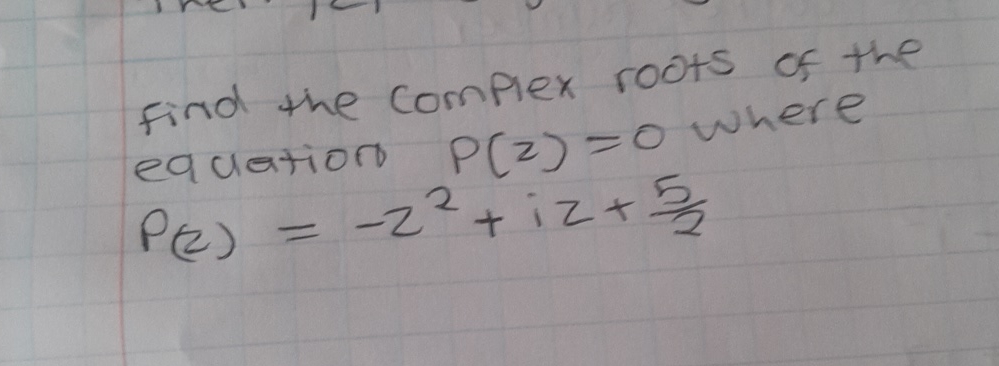 find the complex roots of the
equation P(z) = 0 where
P(z) = -z² + iz + 5/2